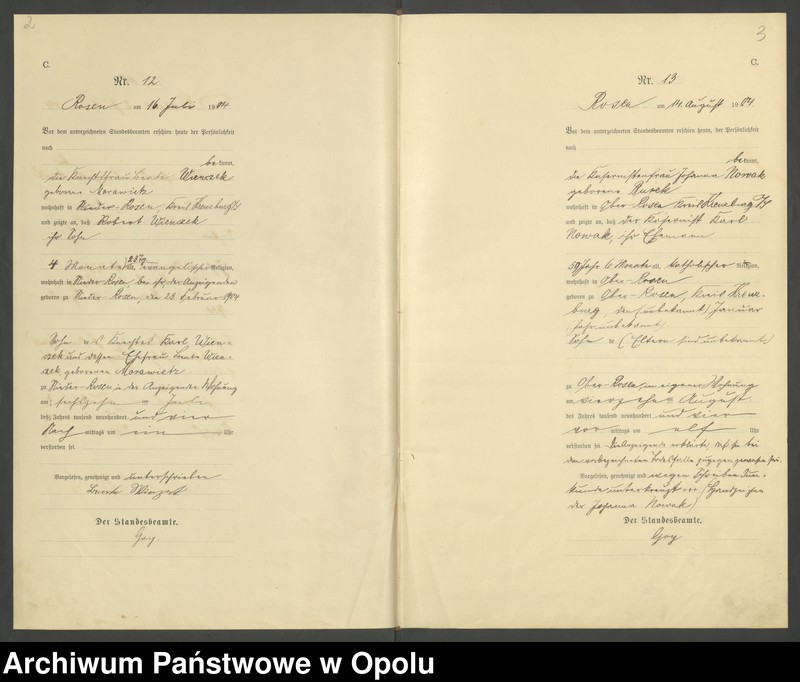 2
C.
Nr. 12
Rosen am 16 Juli 1904
Vor dem unterzeichneten Standesbeamten erschien heute der Persönlichkeit
nach
bekannt,
die Knechtsfrau Beate Wienzek
geborene Morawietz
wohnhaft in Nieder-Rosen, Kreis Kreuzburg O/S
und zeigte an, daß Robert Wienzek
ihr Sohn
4 Monate 23 Tg. evangelischer Religion,
wohnhaft in Nieder-Rosen bei der Anzeigenden
geboren zu Nieder-Rosen, den 23. Februar 1904
Sohn des Knechtes Karl Wien-
zek und dessen Ehefrau Beate Wien-
zek geborenen Morawietz
zu Nieder-Rosen in der Anzeigenden Wohnung
am sechszehn Juli
des Jahres tausend neunhundert und vier
Nachmittags um ein Uhr
verstorben sei.
Vorgelesen, genehmigt und unterschrieben
Der Standesbeamte.
Goy.
3
C.
Nr. 13
Rosen am 14 August 1904.
Vor dem unterzeichneten Standesbeamten erschien heute, der Persönlichkeit
nach
bekannt,
die Johanna Nowak
geborene
wohnhaft in Ober-Rosen Kreis Kreuzburg O/S
und zeigte an, daß der Karl
Nowak, ihr Ehemann
59 Jahr 6 Monate katholischer Religion,
wohnhaft in Ober-Rosen
geboren zu Ober-Rosen, Kreis Kreuz-
burg, den (unbekannt) Januar
Jahr unbekannt
Sohn (Eltern sind unbekannt)
zu Ober-Rosen, in eigener Wohnung
am vierzehn August
des Jahres tausend neunhundert und vier
vormittags um elf Uhr
verstorben sei. Die Anzeigende erklärte, daß sie bei
dem vorbezeichneten Todesfalle zugegen gewesen sei.
Vorgelesen, genehmigt und wegen Schreibensun-
kunde unterkreuzt (Handzeichen
der Johanna Nowak)
Der Standesbeamte.
Goy
Archiwum Państwowe w Opolu